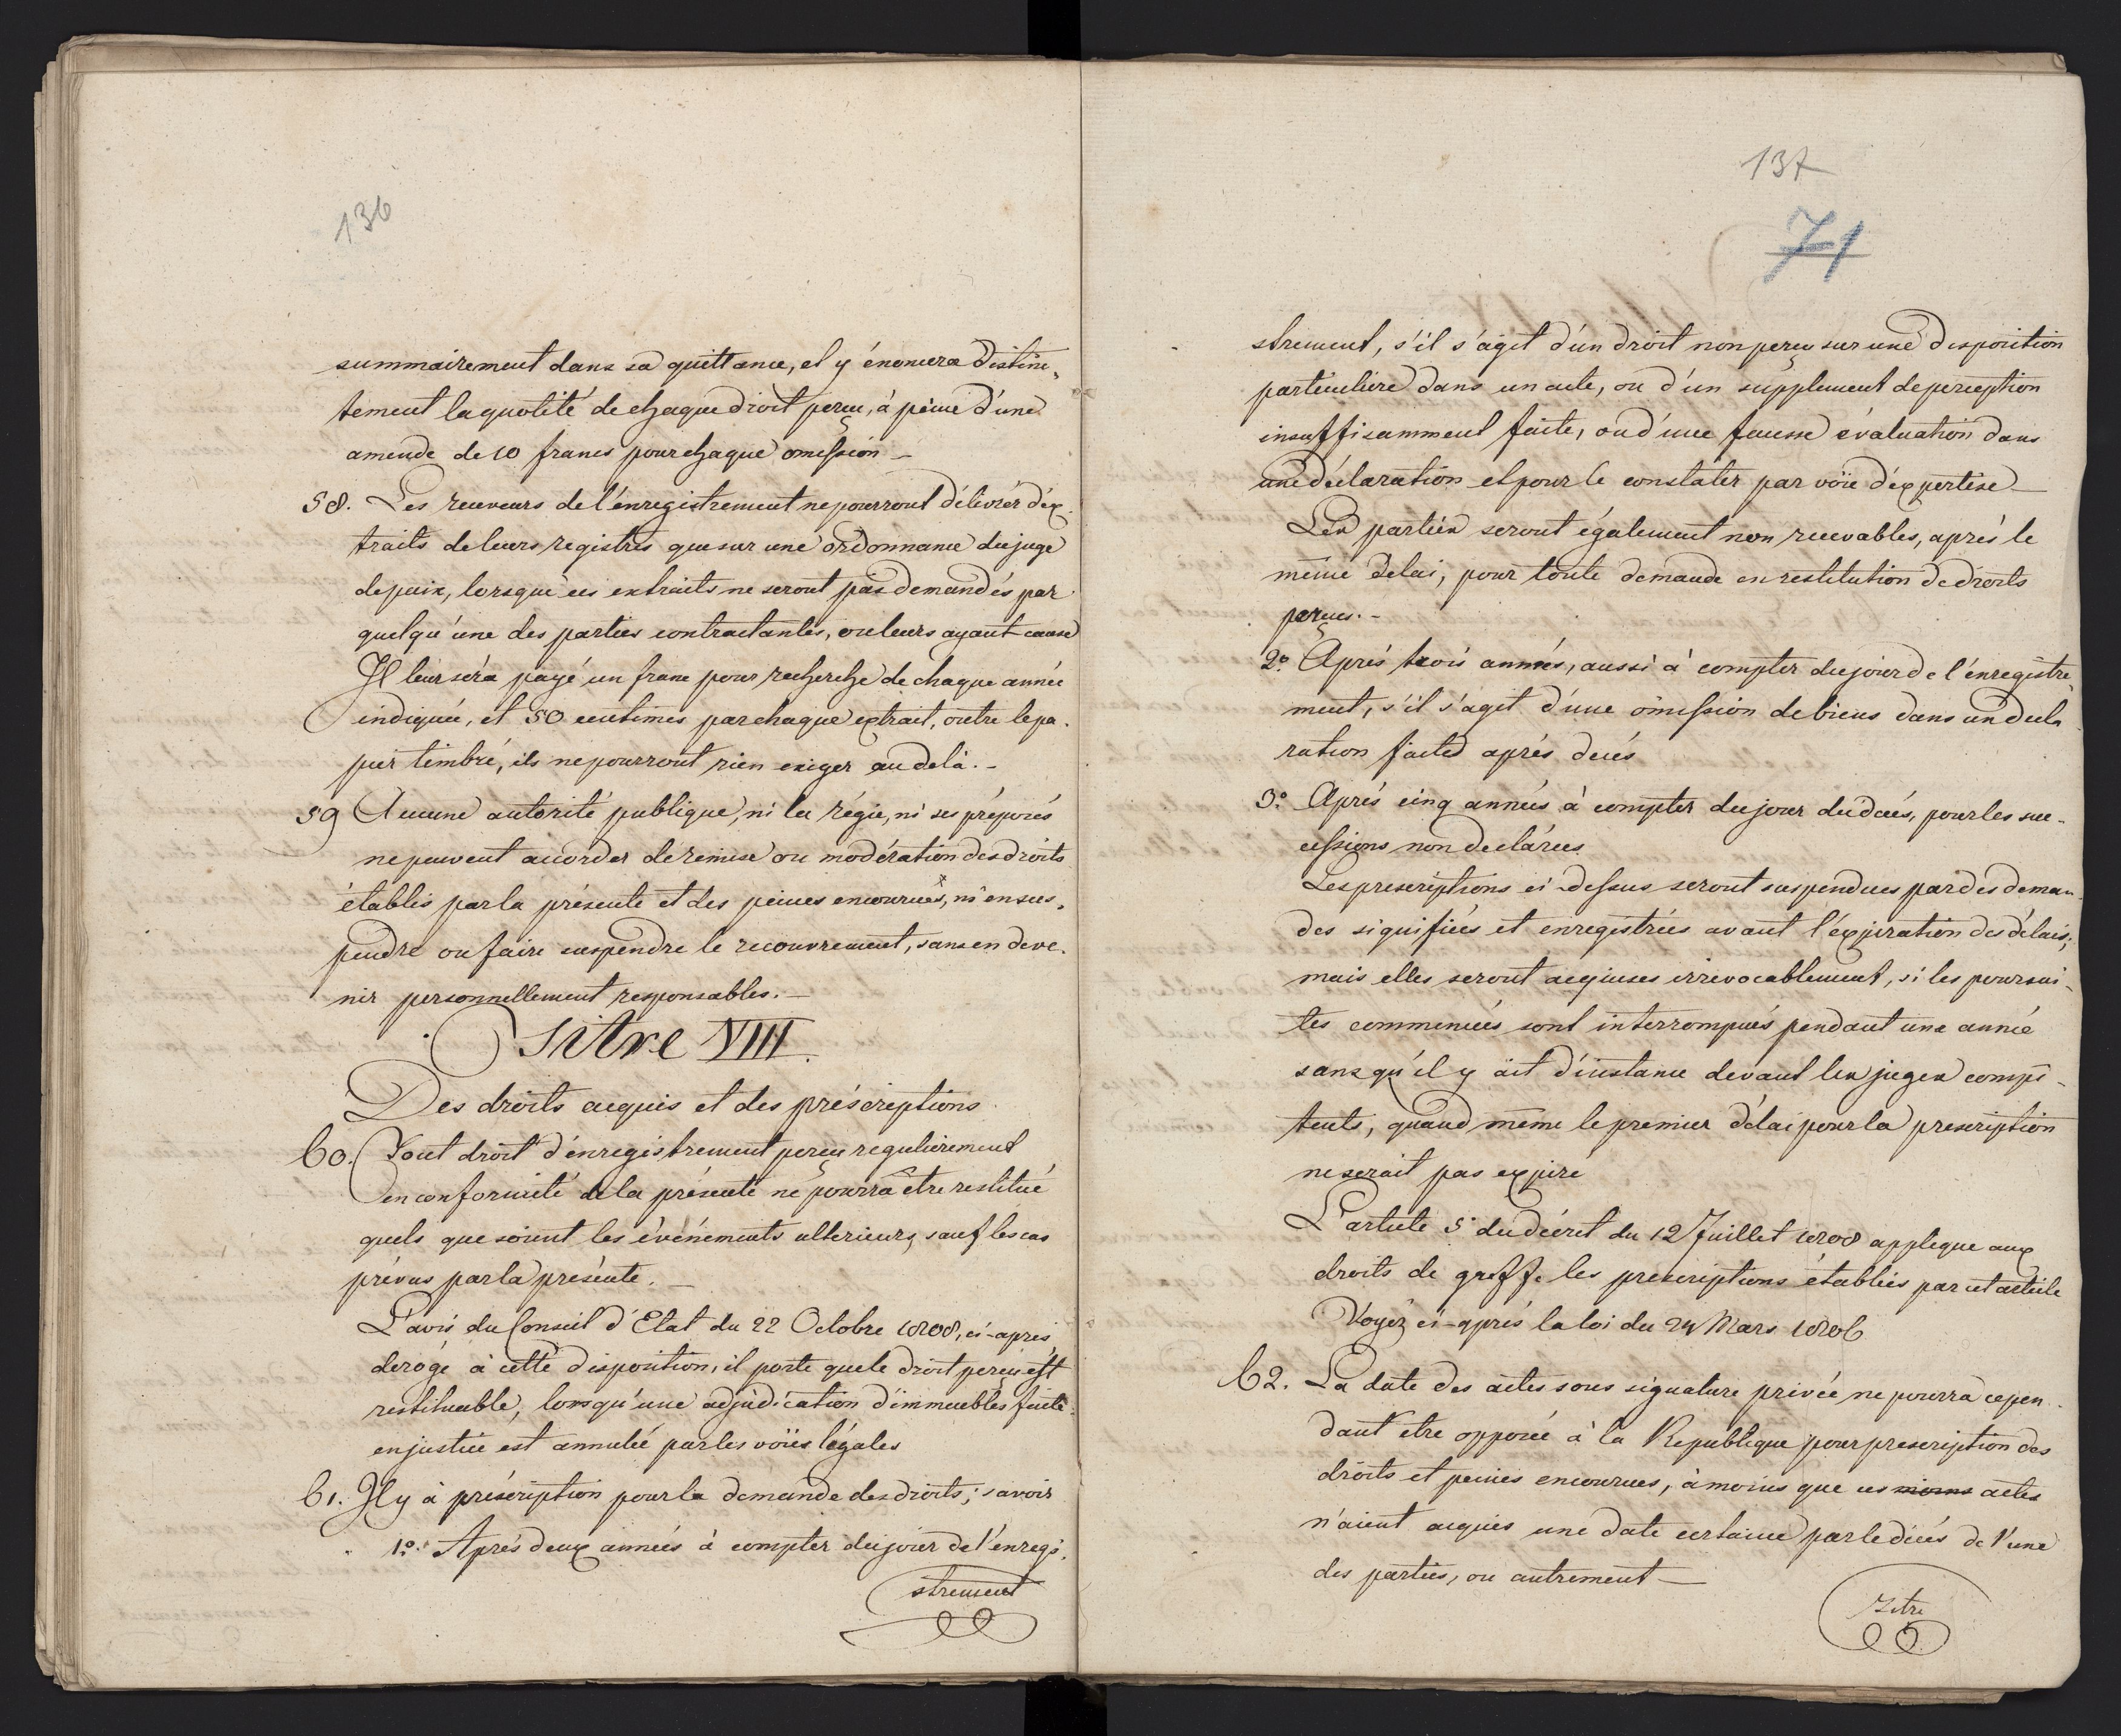 136
summairement dans sa quittance, et y énoncera distinc,
tement la quotité de chaque droit perçu, à peine d'une
amende de 10 francs pour chaque omission —
58. Les receveurs de l'énregistrement ne pourront délivrér d'ex-
traits de leurs registres que sur une ordonnance du juge
de paix, lorsque ces extraits ne seront pas demandés par
quelqu'une des parties contractantes, ou leurs ayant cause
Il leur séra payé un franc pour recherche de chaque année
indiquée, et 50 centimes par chaque extrait, outre le pa-
pier timbré, ils ne pourront rien exiger au delà. -
59 Aucune autorité publique, ni la régie, ni ses préposés
ne peuvent accorder de remise ou modération des droits
établis par la présente et des peines encourues, ni en sus,
pendre ou faire suspendre le recouvrement, sans en deve-
nir personnellement responsables. —
Titre VIII.
Des droits acquis et des préscriptions
60. Tout droit d'énregistrement perçu regulièrement
en conformité de la présente ne pourra être restitué
quels que soient les événements ulterieurs, sauf les cas
prévus par la présente. —
L'avis du Conseil d'Etat du 22 Octobre 1808, ci-après,
deroge à cette disposition, il porte que le droit perçu est
restituable, lorsqu'une adjudication d'immeubles faite
en justice est annulée par les voies légales
61. Il y à préscription pour la demande des droits; savoir
1.° Après deux années à compter du jour de l'enregi-
strement
137
71
strement, s'il s'agit d'un droit non perçu sur une disposition
particulière dans un acte, ou d'un supplement de perception
insuffisamment faite, ou d'une fausse évaluation dans
une déclaration et pour le constater par voie d'expertise —
Les parties seront également non recevables, après le
même delai, pour toute demande en restitution de droits
perçus. -
2.° Après trois années, aussi à compter du jour de l'énregistre-
ment, s'il s'agit d'une omission de biens dans un decla
ration faite après decés
3.° Après cinq années à compter du jour du decés, pour les suc-
cessions non declarées
Les prescriptions ci-dessus seront suspendues par des deman-
des signifiées et enregistrées avant l'expiration des délais;
mais elles seront acquises irrevocablement, si les poursui-
tes commencées sont interrompues pendant une année
sans qu'il y ait d'instance devant les juges compé-
tents, quand même le premier délai pour la prescription
ne serait pas expiré
L'article 5 du décret du 12 Juillet 1808 applique aux
droits de greffe les prescriptions établies par cet article
Voyez ci-après la loi du 24 Mars 1806
62. La date des actes sous signature privée ne pourra cepen-
dant etre opposée à la Republique pour prescription des
droits et peines encourues, à moins que ces moins actes
n'aient acquis une date certaine par le décés de l'une
des parties, ou autrement —
Titre